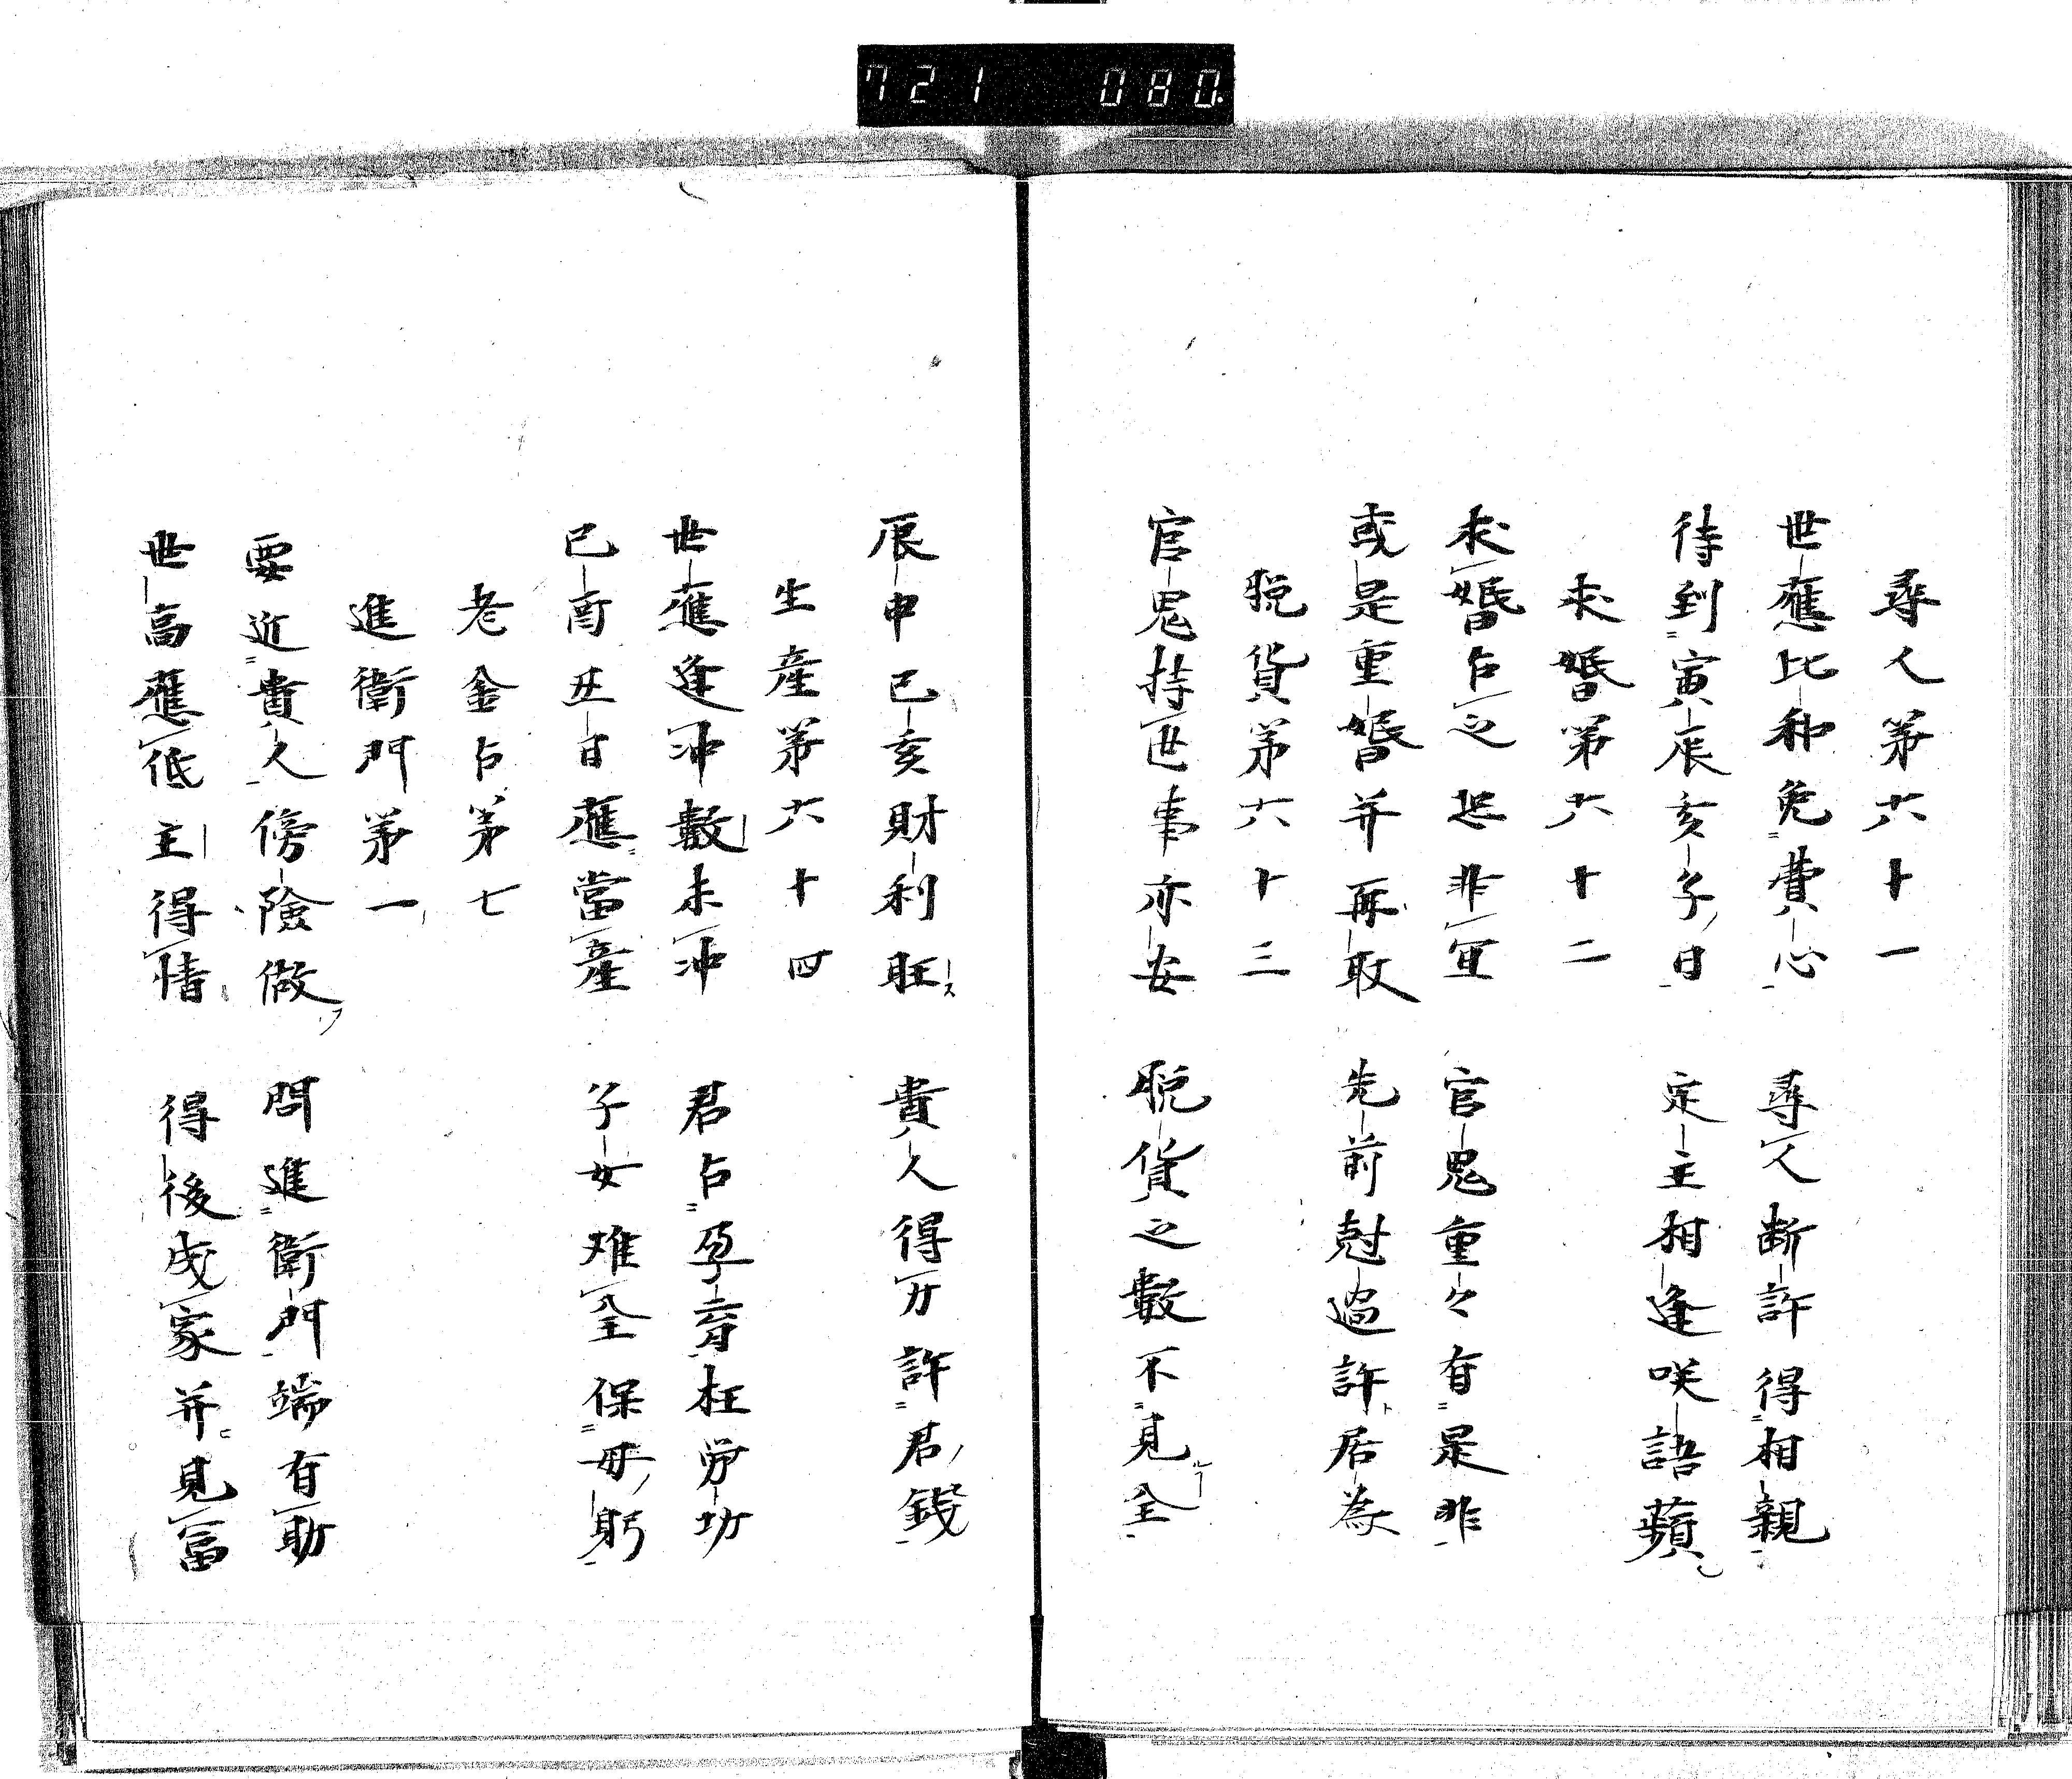 721 080.
尋人第六十一
世應比和免費心 尋人断許得相親
待到寅辰亥子日 定主相逢咲語蘋
求婚第六十二
求婚占之恐非宜 官鬼重々有是非
或是重婚并再取 先前尅過許居為
脱貨第六十三
官鬼持世事亦安 脱貨之數不見全
辰申巳亥財利旺 貴人得力許君錢
生産第六十四
世應逢冲數未冲 君占孕育枉労功
巳酉丑日應當産 子女难全保母躬
老金占第七
進衛門第一
要近貴人傍險做 問進衛門端有助
世高應低主得情 得後成家并見冨